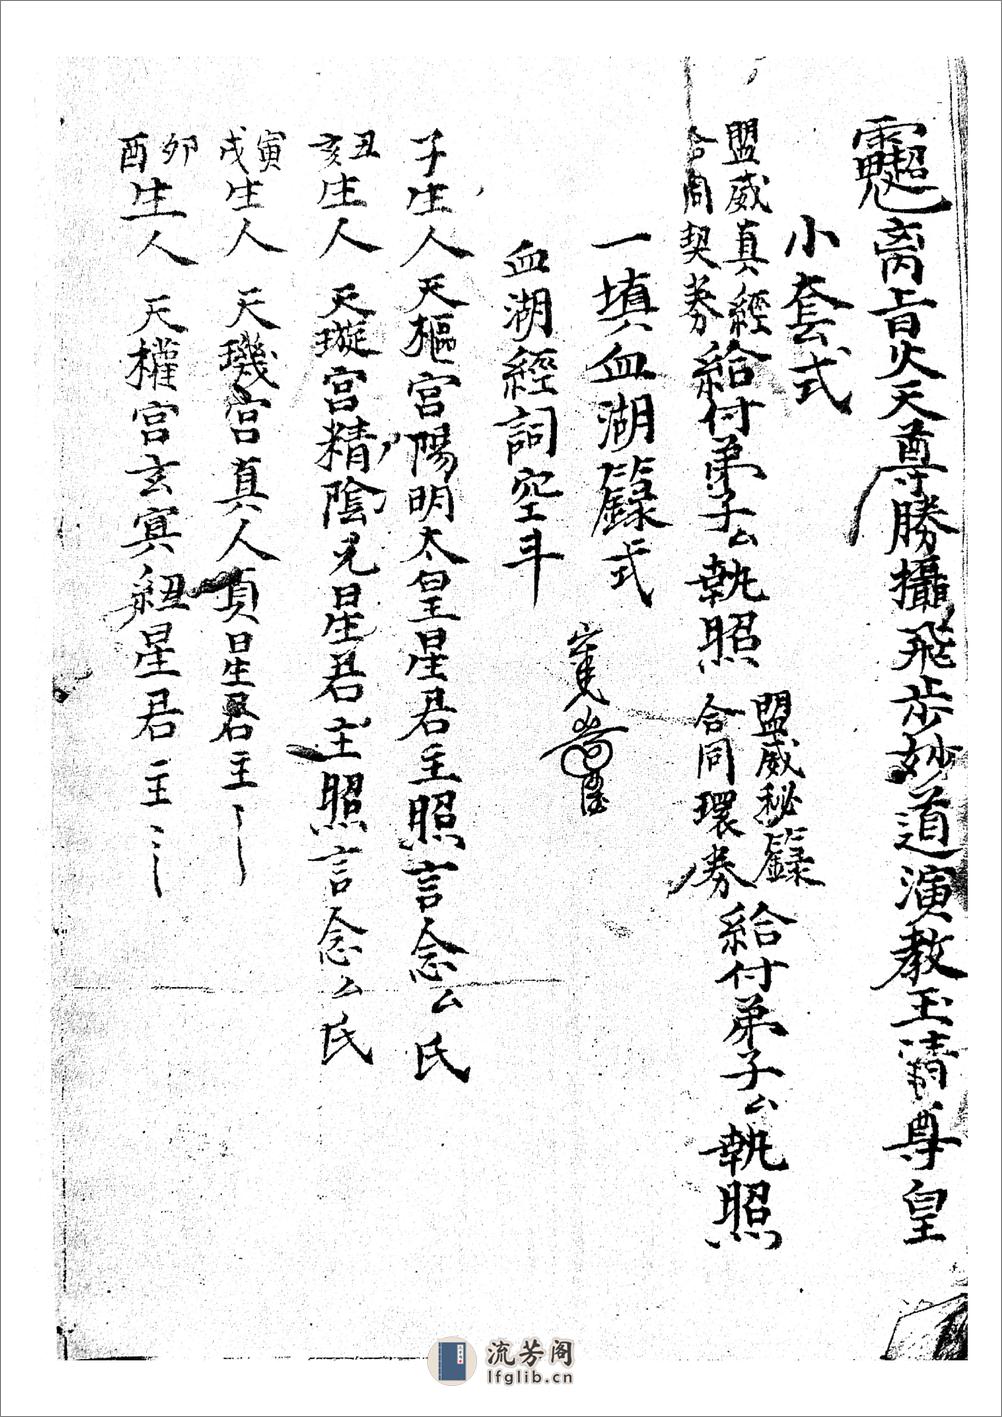 离旨火天尊勝攝飛步妙道演教玉清尊皇
小套式
盟威真經
合同契券
給付弟子厶執照
盟威秘籙
合同環券
給付弟子厶執照
一填血湖籙式
血湖經詞空斗
子生人 天樞宮陽明太皇星君主照言念厶氏
丑亥生人 天璇宮精陰見星君主照言念厶氏
寅戌生人 天璣宮真人貞星君主
卯酉生人 天權宮玄冥紐星君主
流芳阁
lfglib.cn